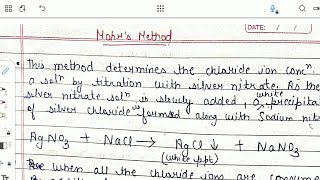 DATE: / /
Mohr's Method
• This method determines the chloride ion concⁿ
a solⁿ by titration with silver nitrate. As the
silver nitrate solⁿ is slowly added, a white precipita
of silver chloride is formed along with Sodium nit
AgNO₃ + NaCl → AgCl↓ + NaNO₃
(white ppt)
when all the chloride ions are consume